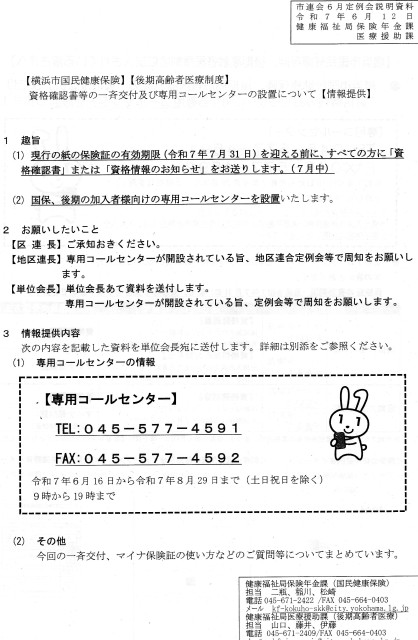 市連会６月定例会説明資料
令和７年６月１２日
健康福祉局保険年金課
医療援助課
【横浜市国民健康保険】【後期高齢者医療制度】
資格確認書等の一斉交付及び専用コールセンターの設置について【情報提供】
１　趣旨
(1) 現行の紙の保険証の有効期限（令和７年７月31日）を迎える前に、すべての方に「資
格確認書」または「資格情報のお知らせ」をお送りします。（７月中）
(2) 国保、後期の加入者様向けの専用コールセンターを設置いたします。
２　お願いしたいこと
【区 連 長】ご承知おきください。
【地区連長】専用コールセンターが開設されている旨、地区連合定例会等で周知をお願いし
ます。
【単位会長】単位会長あて資料を送付します。
専用コールセンターが開設されている旨、定例会等で周知をお願いします。
３　情報提供内容
次の内容を記載した資料を単位会長宛に送付します。詳細は別添をご参照ください。
(1)　専用コールセンターの情報
【専用コールセンター】
TEL:０４５－５７７－４５９１
FAX:０４５－５７７－４５９２
令和７年６月16日から令和７年８月29日まで（土日祝日を除く）
９時から19時まで
(2)　その他
今回の一斉交付、マイナ保険証の使い方などのご質問等についてまとめています。
健康福祉局保険年金課（国民健康保険）
担当　二瓶、稲川、松崎
電話 045-671-2422 /FAX 045-664-0403
メール　kf-kokuho-skk@city.yokohama.lg.jp
健康福祉局医療援助課（後期高齢者医療）
担当　山口、藤井、伊藤
電話 045-671-2409/FAX 045-664-0403